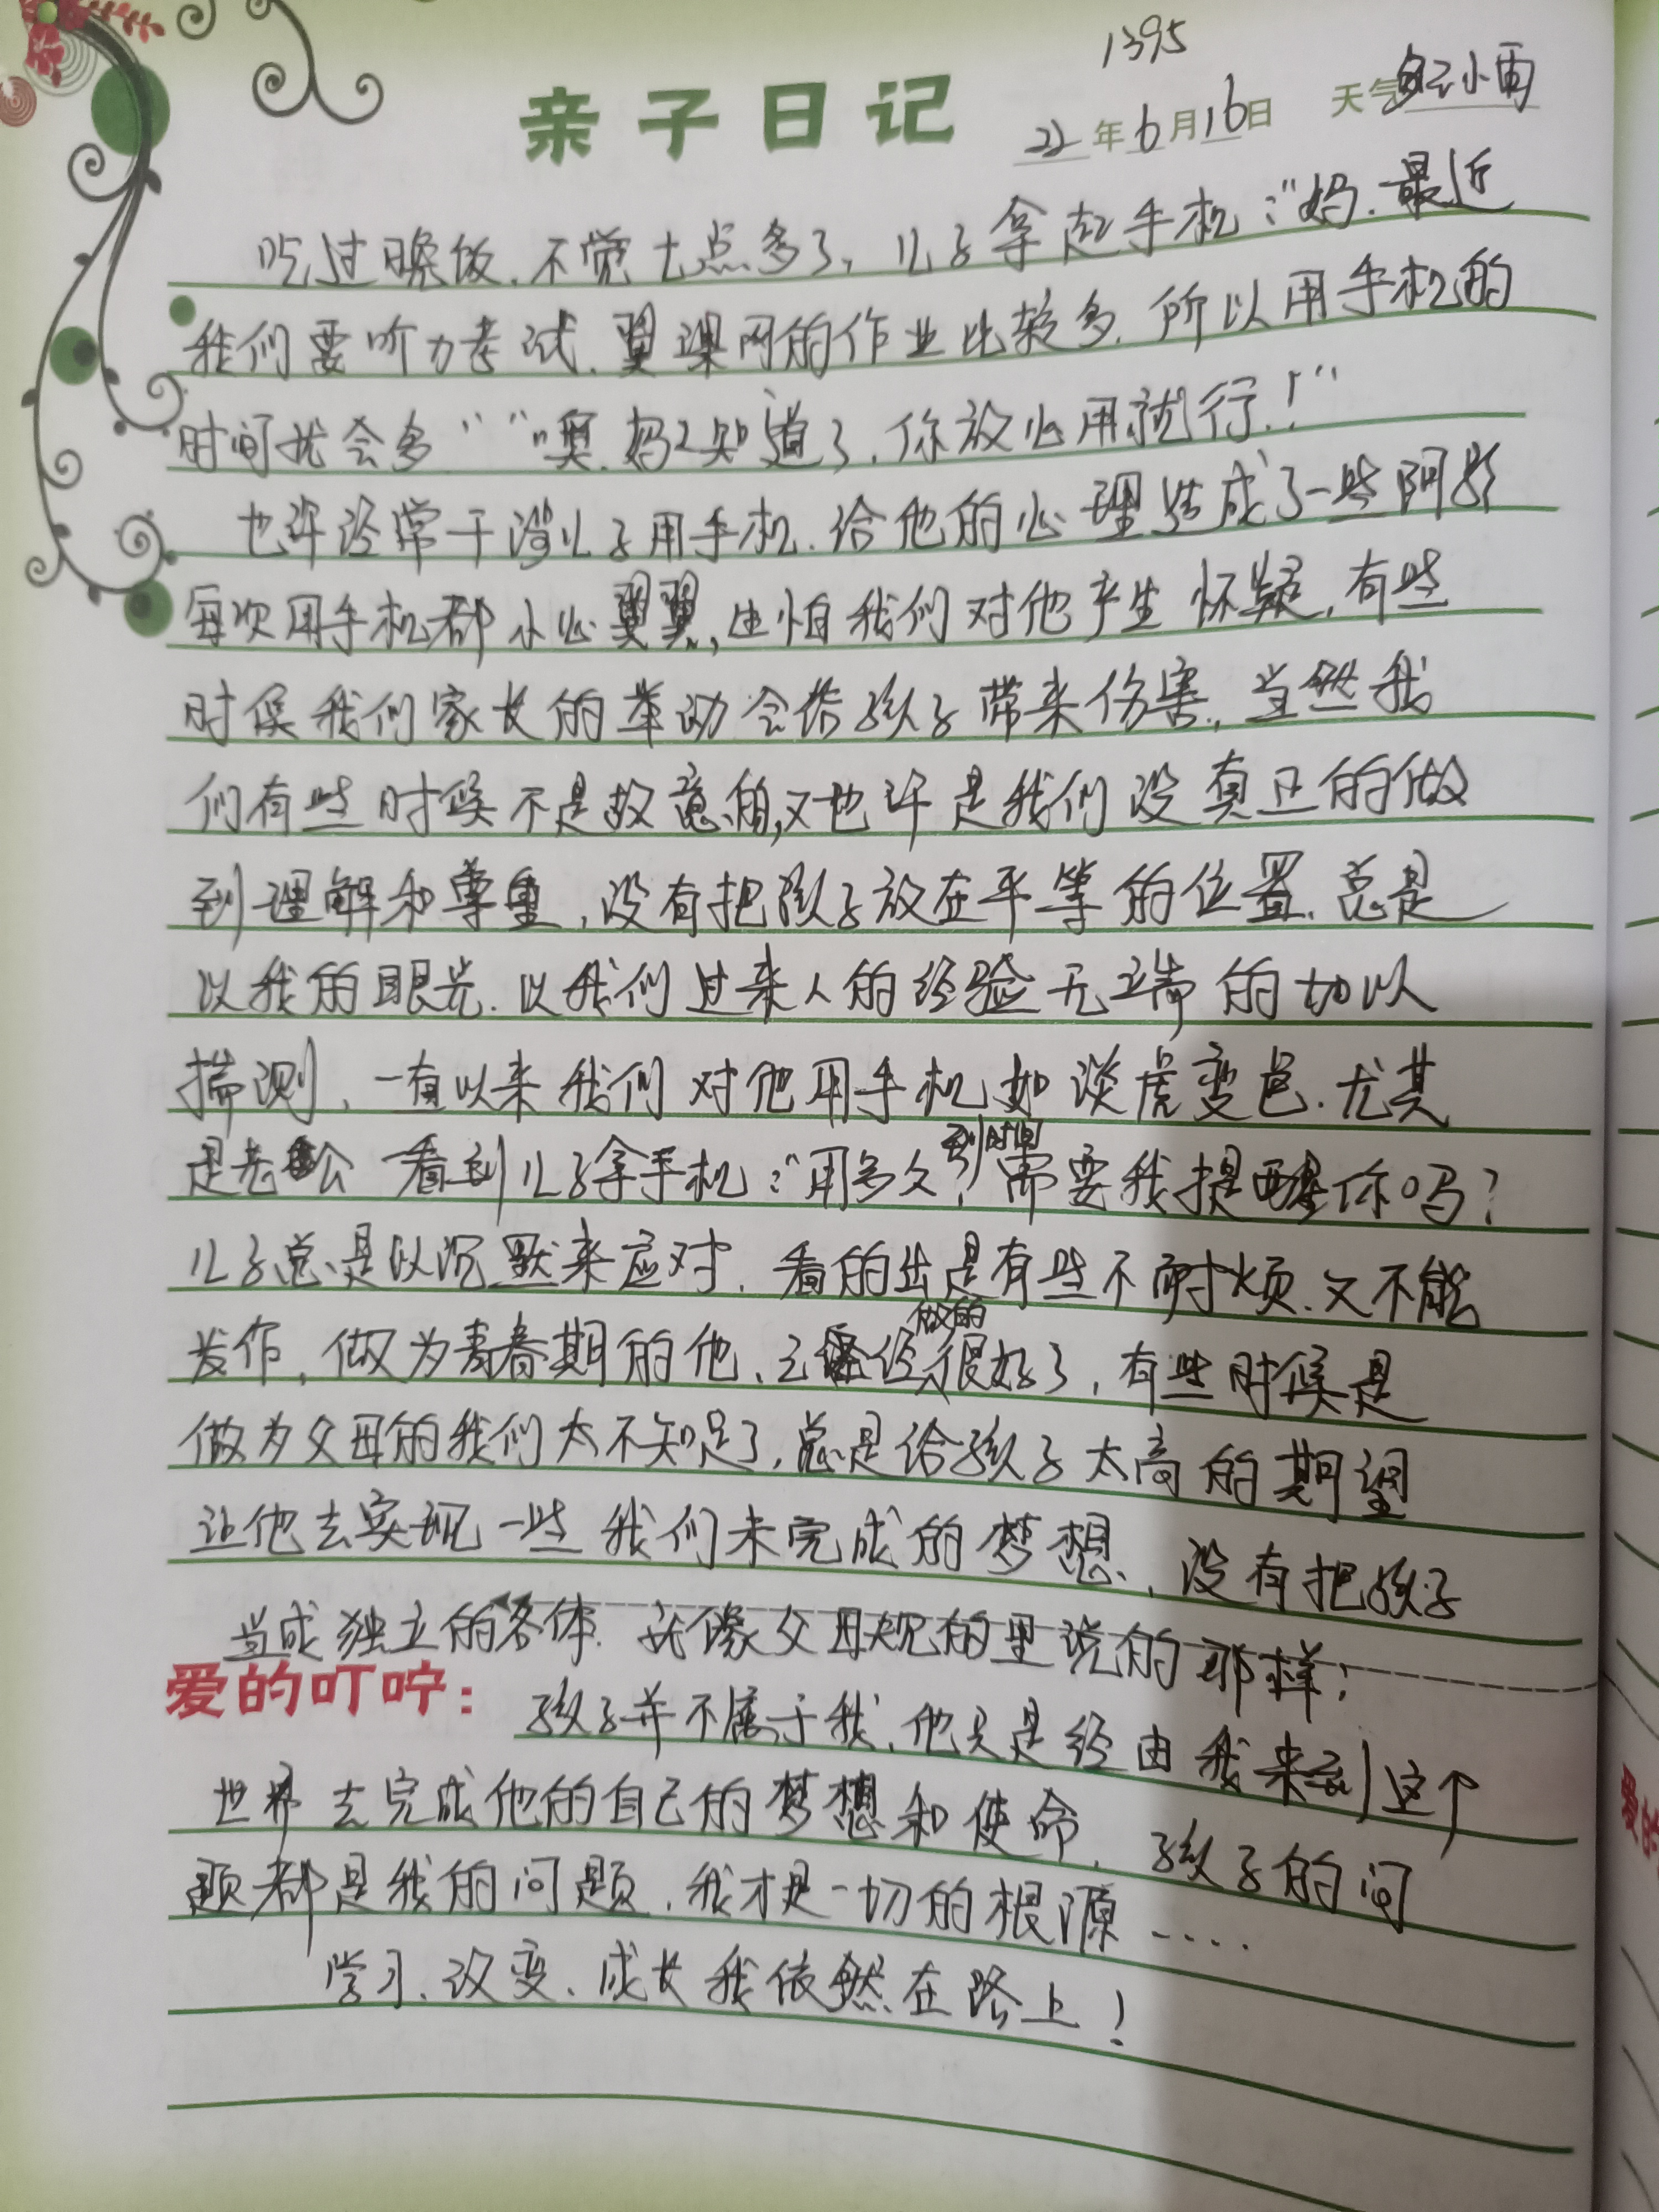 1395
亲子日记 22年6月16日 天气 多云小雨
吃过晚饭，不觉七点多了，儿子拿起手机："妈，最近
我们要听力考试，翼课网的作业比较多，所以用手机的
时间就会多""噢，妈妈知道了，你放心用就行！"
也许经常干涉儿子用手机，给他的心理造成了一些阴影
每次用手机都小心翼翼，也怕我们对他产生怀疑，有些
时候我们家长的举动会给孩子带来伤害，当然我
们有些时候不是故意的，又也许是我们没真正的做
到理解和尊重，没有把孩子放在平等的位置，总是
以我的眼光，以我们过来人的经验无端的加以
揣测，一直以来我们对他用手机如谈虎变色，尤其
是老公一看到儿子拿手机："用多久，到时间需要我提醒你吗？
儿子总是以沉默来应对，看的出是有些不耐烦，又不能
发作，做为青春期的他，已经做的很好了，有些时候是
做为父母的我们太不知足了，总是给孩子太高的期望
让他去实现一些我们未完成的梦想，没有把孩子
当成独立的各体，就像父母规的里说的那样：
爱的叮咛：孩子并不属于我，他只是经由我来到这个
世界去完成他的自己的梦想和使命，孩子的问
题都是我的问题，我才是一切的根源……
学习、改变、成长我依然在路上！
爱的